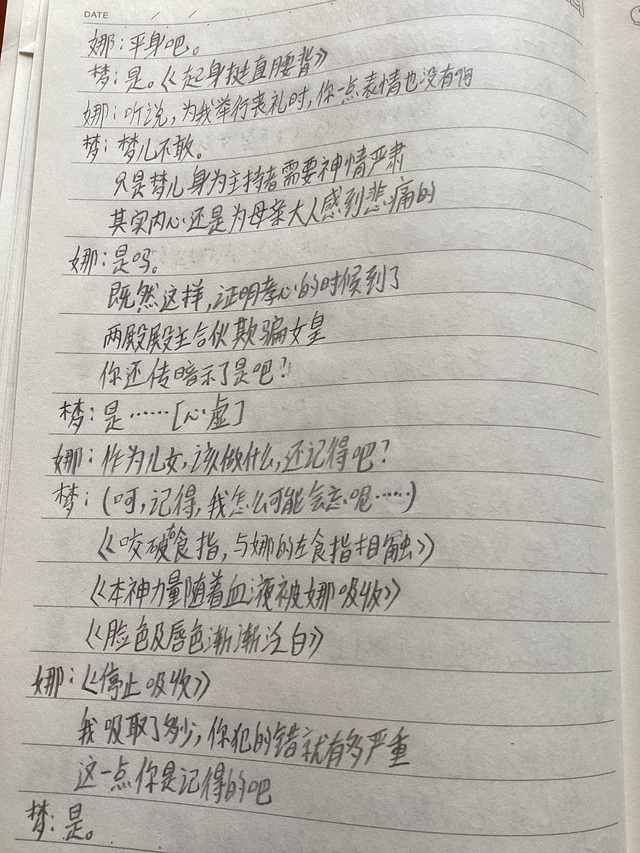 DATE / /
娜：平身吧。
梦：是。《起身挺直腰背》
娜：听说，为我举行丧礼时，你一点表情也没有啊
梦：梦儿不敢。
只是梦儿身为主持者需要神情严肃
其实内心还是为母亲大人感到悲痛的
娜：是吗。
既然这样，证明孝心的时候到了
两殿殿主合伙欺骗女皇
你还传暗示了是吧？
梦：是……[心虚]
娜：作为儿女，该做什么，还记得吧？
梦：（呵，记得，我怎么可能会忘呢……）
《咬破食指，与娜的左食指相触》
《本神力量随着血液被娜吸收》
《脸色及唇色渐渐泛白》
娜：《停止吸收》
我吸取了多少，你犯的错就有多严重
这一点你是记得的吧
梦：是。